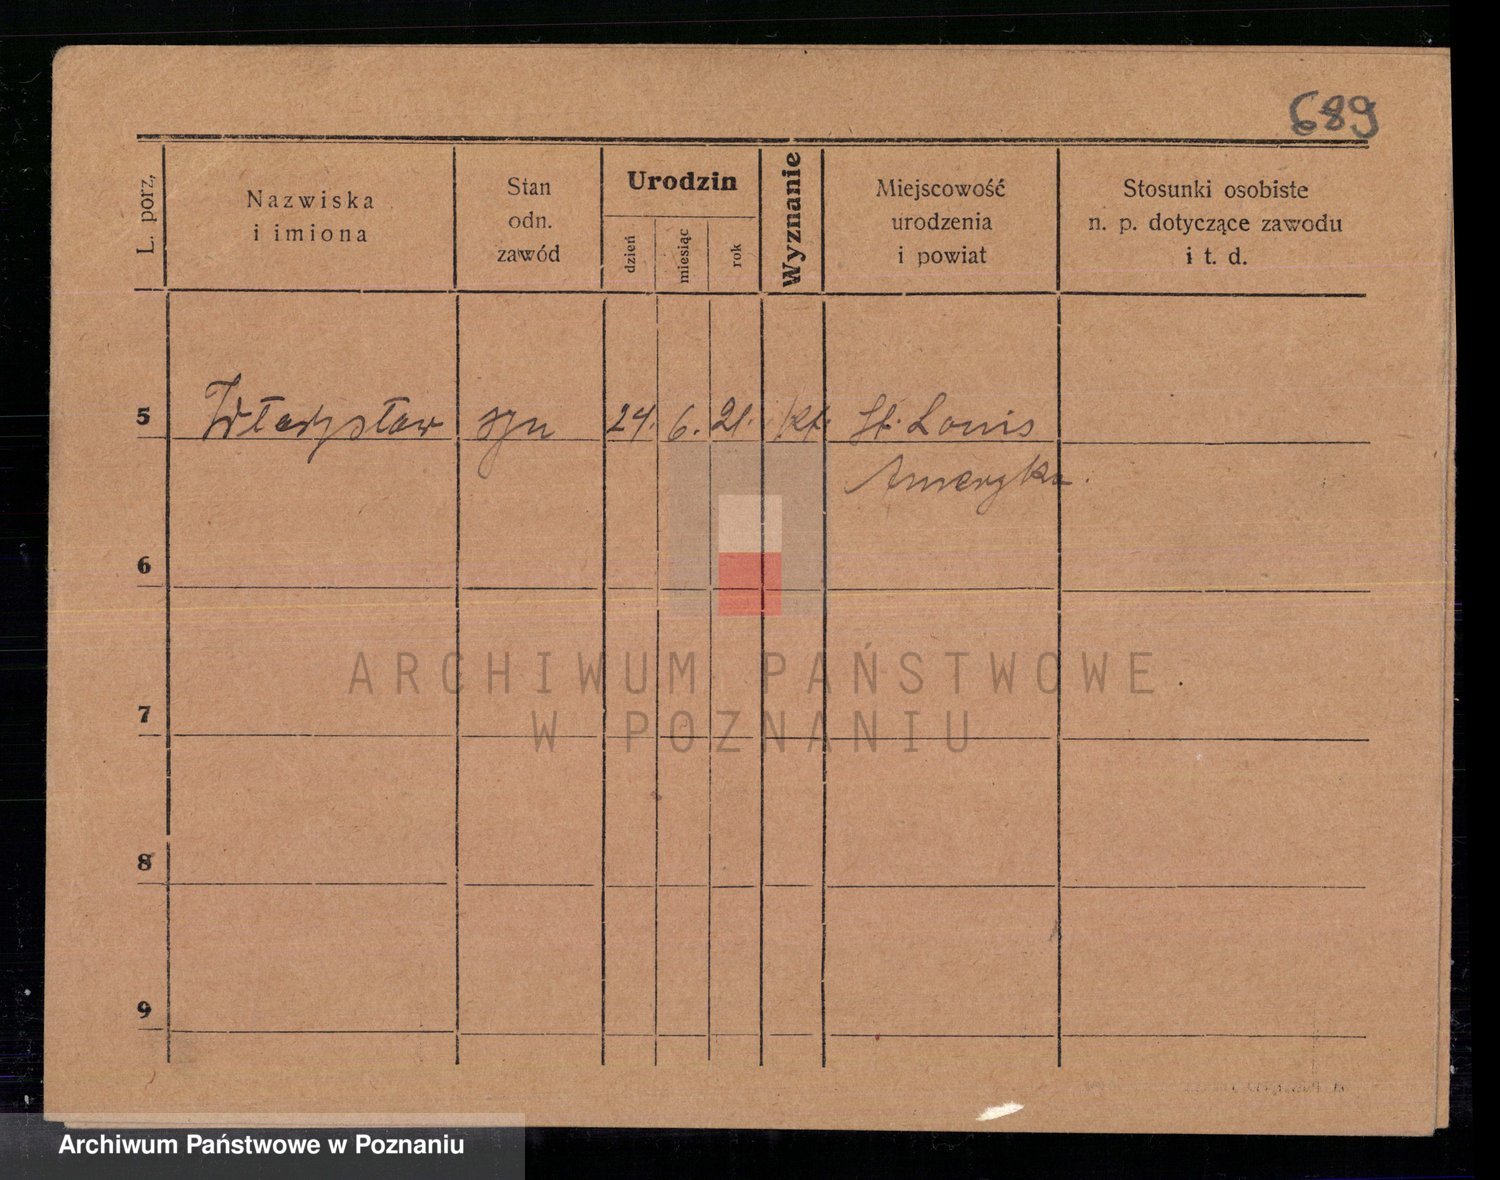 689
L. porz,
Nazwiska
i imiona
Stan
odn.
zawód
Urodzin
dzień
miesiąc
rok
Wyznanie
Miejscowość
urodzenia
i powiat
Stosunki osobiste
n. p. dotyczące zawodu
i t. d.
5 Władysław syn 24. 6. 21. kt. St. Louis
Ameryka.
6
7
8
9
ARCHIWUM PAŃSTWOWE
W POZNANIU
Archiwum Państwowe w Poznaniu